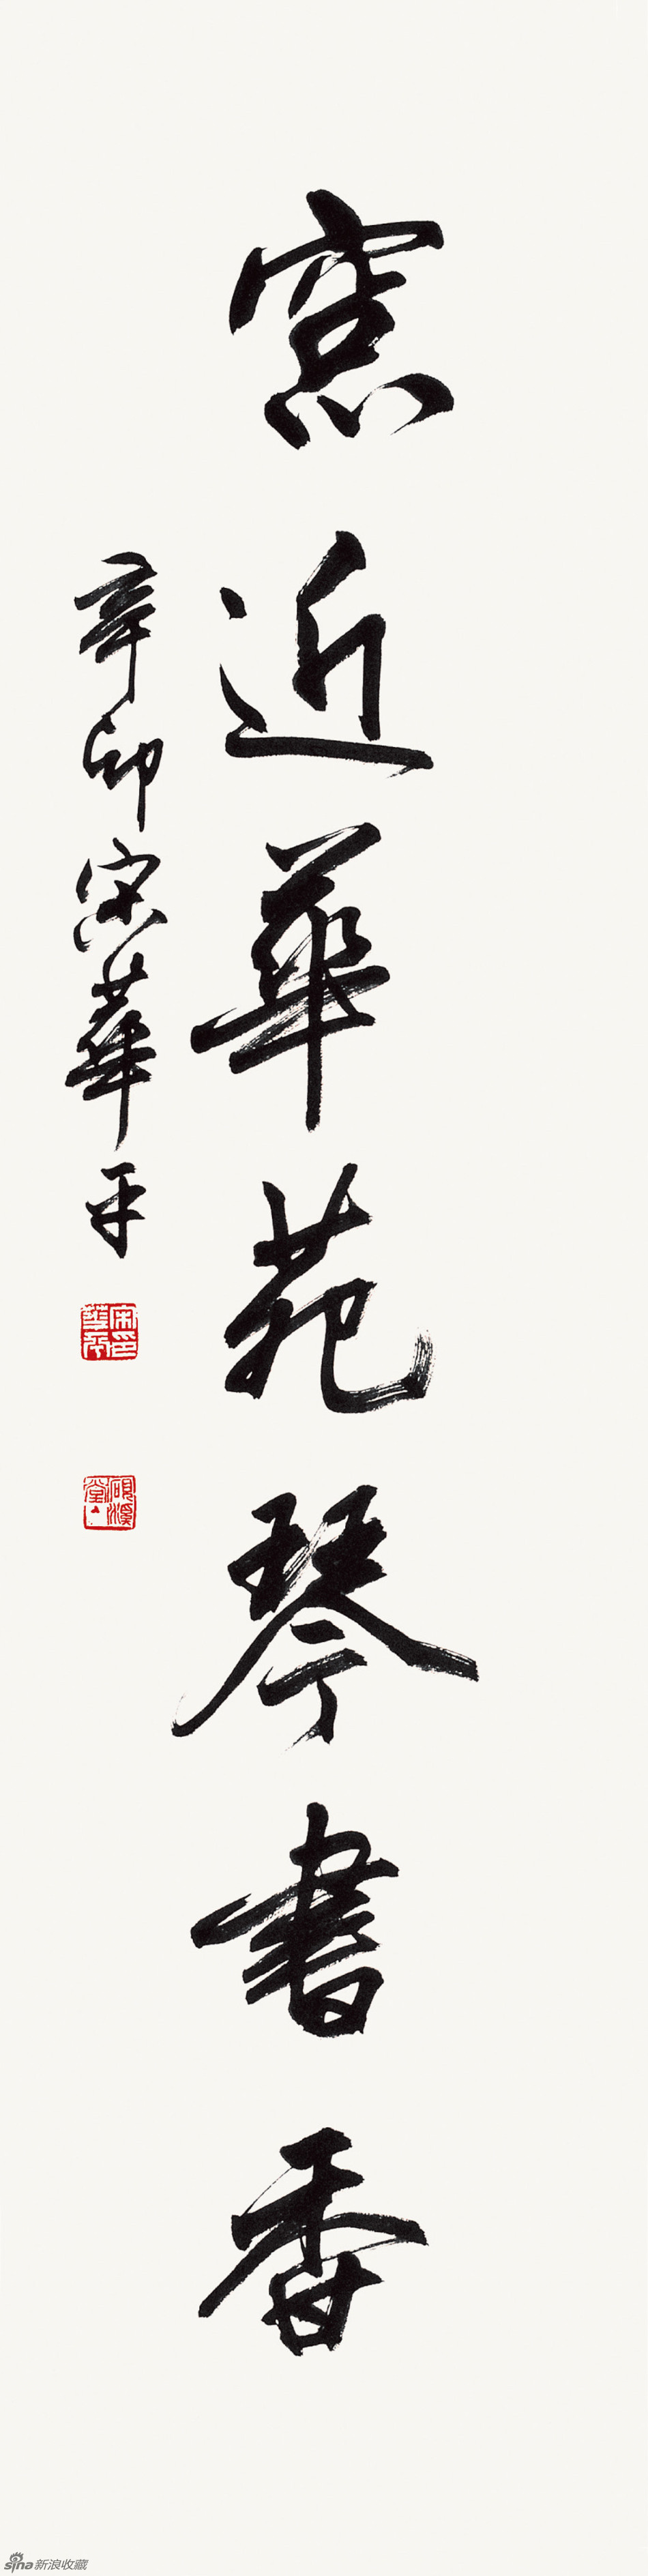 窓近華苑琴書香
辛卯宋華平
宋華平印
硯溪堂
sina新浪收藏